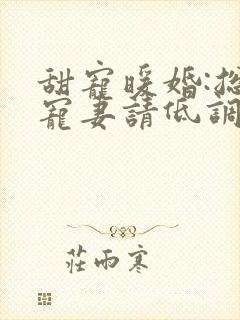 甜寵暖婚:總
寵妻請低調
莊雨寒